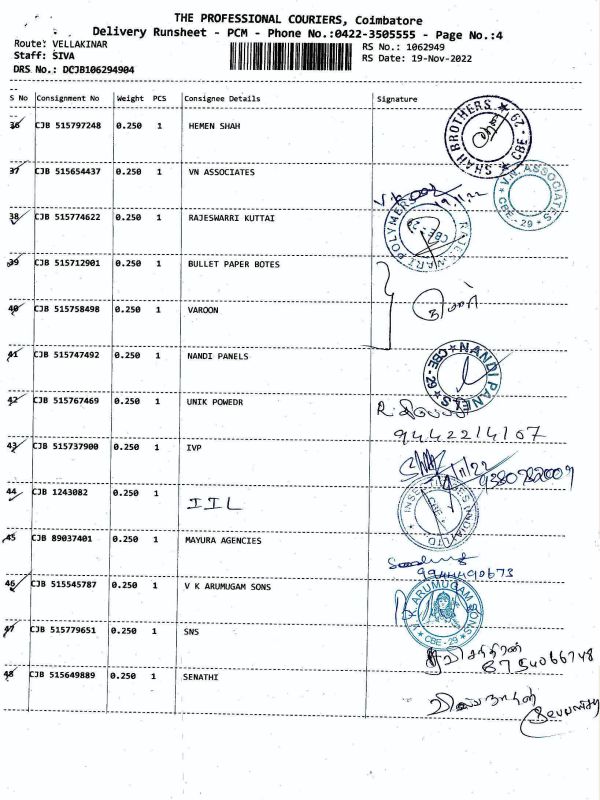 THE PROFESSIONAL COURIERS, Coimbatore
Delivery Runsheet - PCM - Phone No.:0422-3505555 - Page No.:4
Route: VELLAKINAR RS No.: 1062949
Staff: SIVA RS Date: 19-Nov-2022
DRS No.: DCJB106294904
S No Consignment No Weight PCS Consignee Details Signature
36 CJB 515797248 0.250 1 HEMEN SHAH
SHAH BROTHERS ★ CBE - 29 ★
37 CJB 515654437 0.250 1 VN ASSOCIATES
V.N. ASSOCIATES ★ CBE - 29 ★
38 CJB 515774622 0.250 1 RAJESWARRI KUTTAI
RAJESWARI POLYMERS CBE - 29
39 CJB 515712901 0.250 1 BULLET PAPER BOTES
40 CJB 515758498 0.250 1 VAROON
41 CJB 515747492 0.250 1 NANDI PANELS
★ NANDI PANELS ★ CBE - 29
42 CJB 515767469 0.250 1 UNIK POWEDR
9442214107
43 CJB 515737900 0.250 1 IVP
44 CJB 1243082 0.250 1 IIL
45 CJB 89037401 0.250 1 MAYURA AGENCIES
9944490673
46 CJB 515545787 0.250 1 V K ARUMUGAM SONS
V.K. ARUMUGAM SONS ★ CBE - 29 ★
47 CJB 515779651 0.250 1 SNS
8754066748
48 CJB 515649889 0.250 1 SENATHI